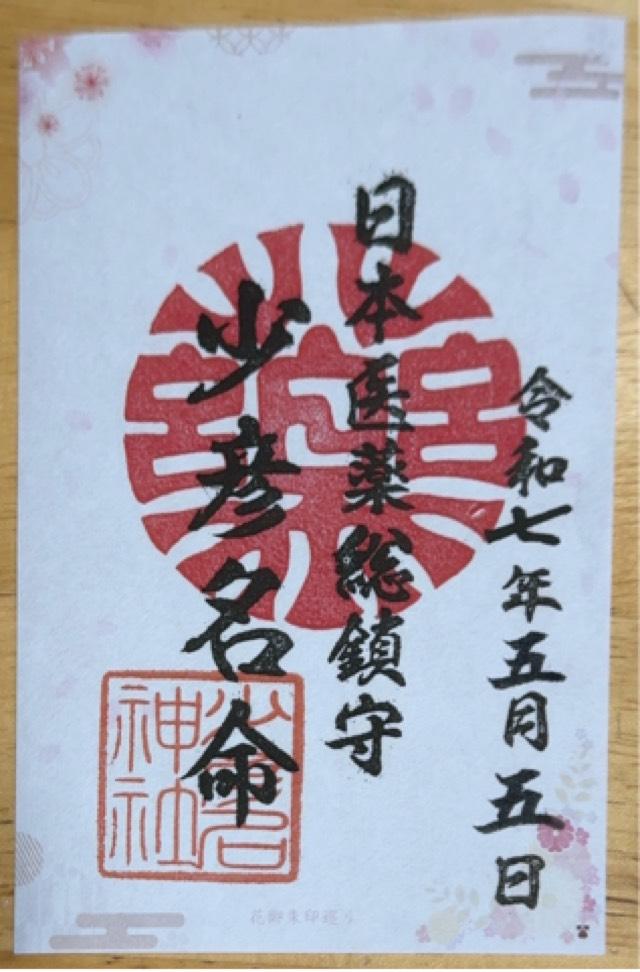 令和七年五月五日
日本医薬総鎮守
少彦名命
少彦名
神社
花御朱印巡り